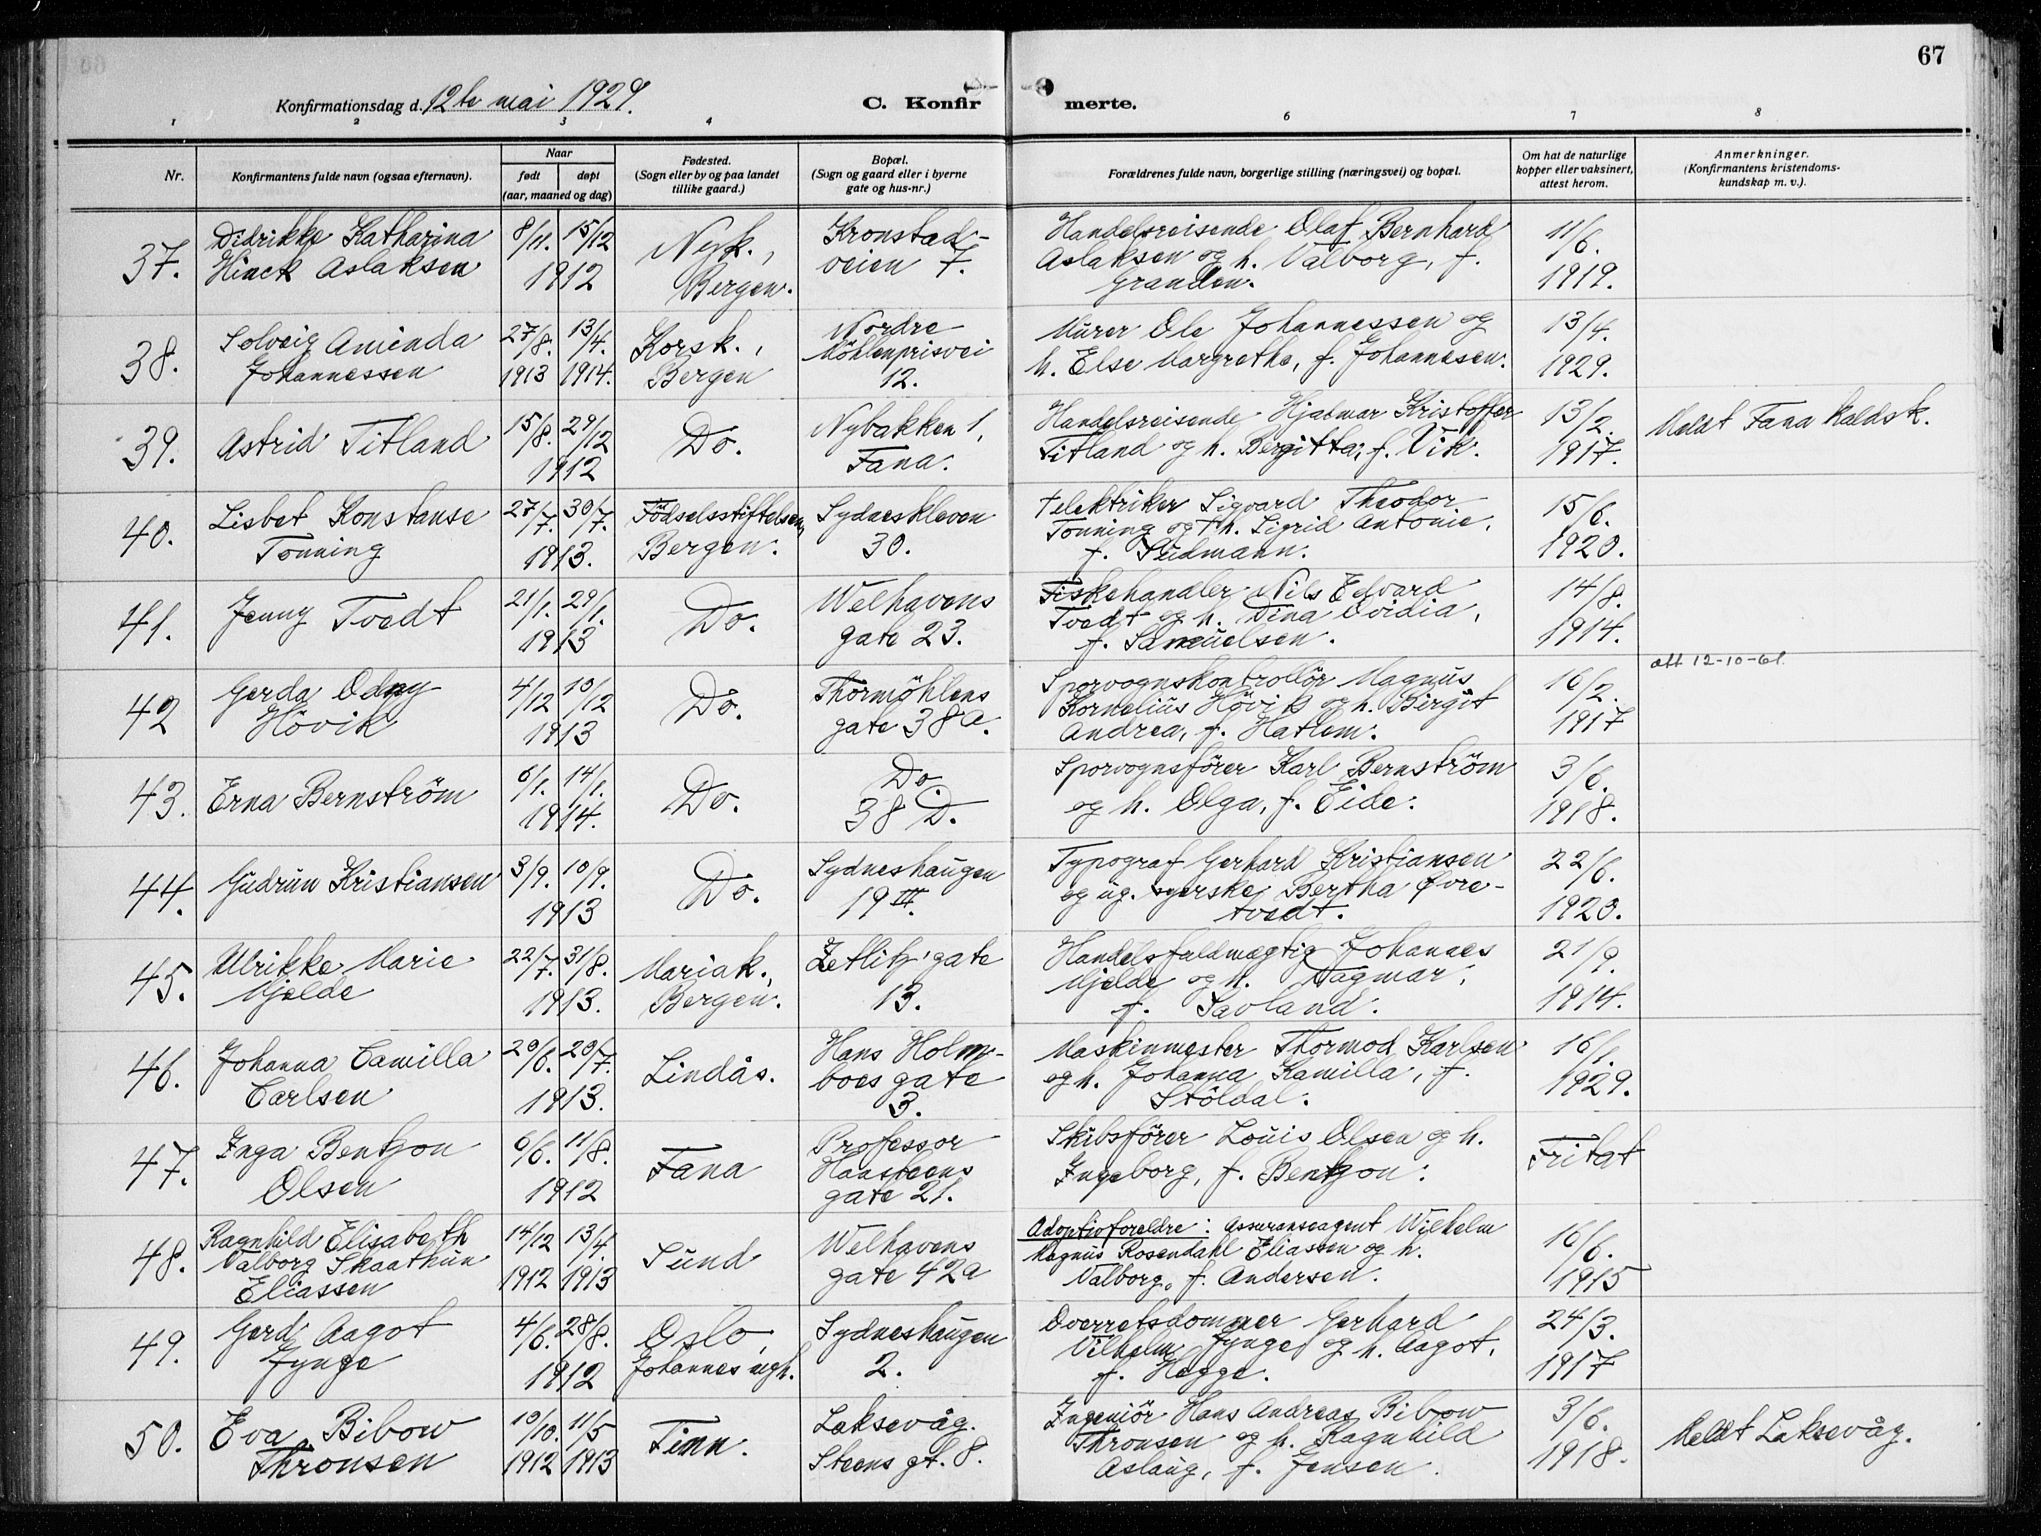 67
Konfirmationsdag d. 12te mai 1929.
C. Konfirmerte.
1 2 3 4 6 7 8
Nr.
Konfirmantens fulde navn (ogsaa efternavn).
Naar
født
døpt
(aar, maaned og dag)
Fødested.
(Sogn eller by og paa landet
tillike gaard.)
Bopæl.
(Sogn og gaard eller i byerne
gate og hus-nr.)
Forældrenes fulde navn, borgerlige stilling (næringsvei) og bopæl.
Om hat de naturlige
kopper eller vaksinert,
attest herom.
Anmerkninger.
(Konfirmantens kristendoms-
kundskap m. v.).
37.
Didrikke Katharina
Hinck Aslaksen
8/11. 15/12
1912
Nyk.,
Bergen.
Kronstad-
veien 7.
Handelsreisende Olaf Bernhard
Aslaksen og h. Valborg, f.
Granden.
11/6.
1919.
38.
Solveig Amenda
Johannessen
27/8. 13/4.
1913 1914.
Korsk.,
Bergen
Nordre
Möhlenprisvei
12.
Murer Ole Johannessen og
h. Else Margrethe, f. Johannesen.
13/4.
1929.
39.
Astrid Titland
15/8. 29/12
1912
Do.
Nybakken 1,
Fana.
Handelsreisende Hjalmar Kristoffer
Titland og h. Bergitta, f. Vik.
13/2.
1917.
Meldt Fana
40.
Lisbet Konstanse
Tonning
27/7. 30/7.
1913.
Födselsstiftelsen,
Bergen.
Sydneskleven
30.
Telektriker Sigvard Theodor
Tonning og h. Sigrid Antonie,
f. Südmann.
15/6.
1920.
41.
Jenny Tvedt
21/1. 29/1.
1913
Do.
Welhavens
gate 23.
Fiskehandler Nils Edvard
Tvedt og h. Dina Ovidia,
f. Samuelsen.
14/8.
1914.
42
Gerda Odny
Hövik
4/12 10/12
1913
Do.
Thormöhlens
gate 38 a.
Sporvognskontrollör Magnus
Kornelius Hövik og h. Birgit
Andrea, f. Hatlem.
16/2.
1917
att 12-10-61.
43.
Erna Bernström
6/1. 14/1.
1914.
Do.
Do.
38 D.
Sporvognsförer Karl Bernström
og h. Olga, f. Eide.
3/6.
1918.
44.
Gudrun Kristiansen
3/9. 10/9.
1913
Do.
Sydneshaugen
19
Typograf Gerhard Kristiansen
og ug. syerske Bertha Øvre-
tvedt.
22/6.
1920.
45.
Ulrikke Marie
Mjelde
22/7. 31/8.
1913.
Mariak.,
Bergen.
Zetlitz' gate
13.
Handelsfuldmægtig Johannes
Mjelde og h. Dagmar,
f. Savland.
21/9.
1914.
46.
Johanna Camilla
Carlsen
20/6. 20/7.
1913.
Lindås.
Hans Holm-
boes gate
3.
Maskinmester Thormod Karlsen
og h. Johanna Kamilla, f.
Stöldal.
16/1.
1929.
47.
Inga Bentzon
Olsen
6/6. 11/8.
1912
Fana
Professor
Haasteens
gate 21.
Skibsförer Louis Olsen og h.
Ingeborg, f. Bentzon.
Fritat
48.
Ragnhild Elisabeth
Valborg Skaathun
Eliassen
14/12 13/4.
1912 1913
Sund
Welhavens
gate 42a
Adoptivforeldre: Assuranseagent Wilhelm
Magnus Rosendahl Eliassen og h.
Valborg, f. Andersen.
16/6.
1915
49.
Gerd Aagot
Jynge
4/6. 28/8.
1912
Oslo,
Johannes
Sydneshaugen
2.
Overretsdommer Gerhard
Vilhelm Jynge og h. Aagot,
f. Hegge.
24/3.
1917
50.
Eva Bibow
Thronsen
10/10. 11/5
1912 1913
Tinn.
Laksevåg.
Steens gt. 8.
Ingeniör Hans Andreas Bibow
Thronsen og h. Ragnhild
Aslaug, f. Jensen.
3/6.
1918.
Meldt Laksevåg.